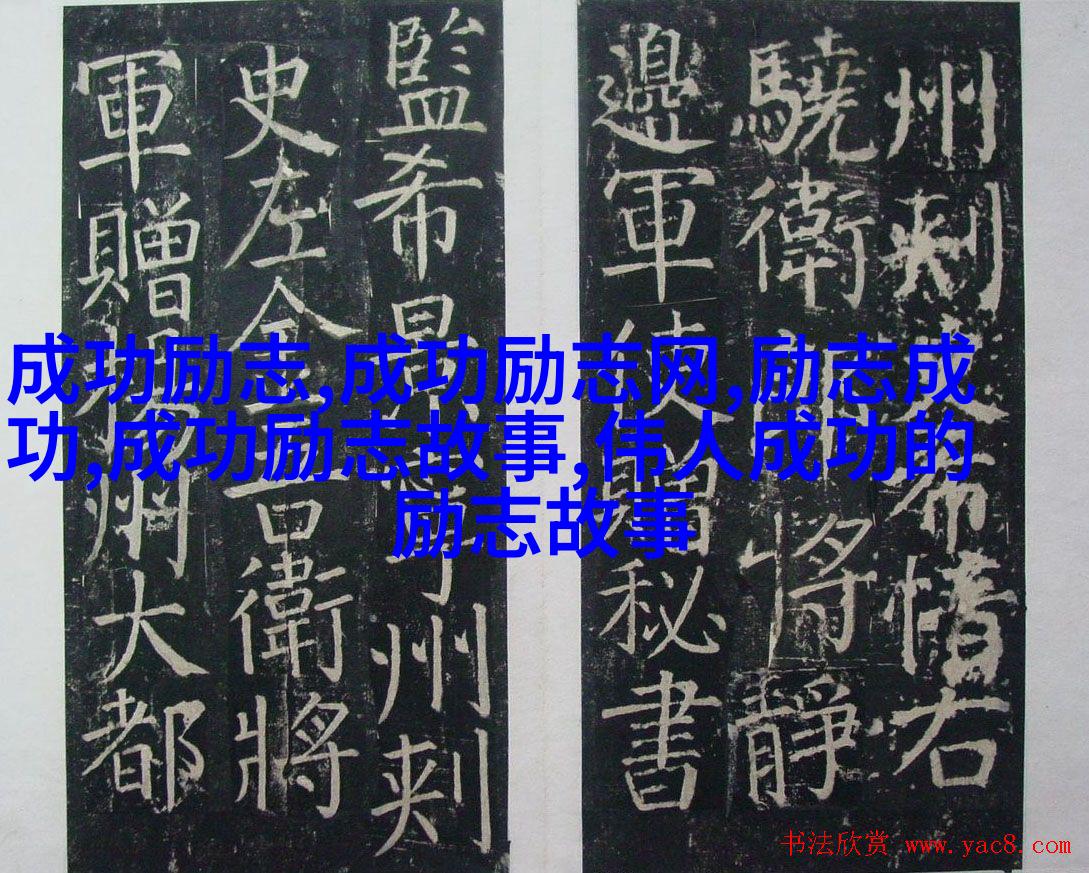 州刺希惰右
驍衛將靜
邊軍使贈秘書
監希州刺
史左金吾衛將
軍贈州大都
成功励志,成功励志网,励志成
功,成功励志故事,伟人成功的
励志故事
书法欣赏 www.yac8.com